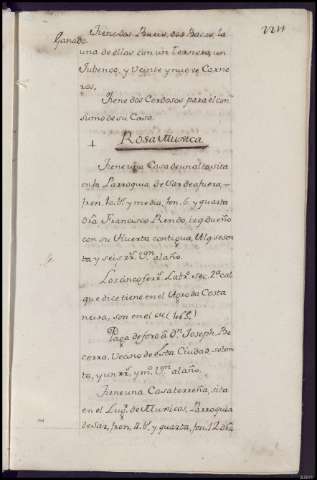 Ganado
Tiene dos Bueis, dos Bacas, la
una de ellas con un Ternera, un
Jubenco, y Veinte y nueve Carne
ros,
Tiene dos Cerdosos para el con
sumo de su Casa
+ Rosa Muxica
Tiene una Casa de un alto sita
en la Parroquia de Sar de afuera,
fren. 10. vs. y media, fon. 6. y quarta
Dra. Francisco Rendo, izq. dueño
con su Huerta contigua, Alq. sesen
ta y seis rrs. Vn. al año.
Los cinco ferrs. Labra. sec. 2a. cal
que dice tiene en el Agro da Costa
nura, son en el
Paga de foro â Dn. Joseph Be
cerra, Vecino de esta Ciudad, seten
ta, y un rrs. y mo. Vn. al año.
Tiene una Casa terreña, sita
en el Lugr. de Muxicas, Parroquia
de Sar, fren. 11. vs. y quarta, fon. 12. dra.